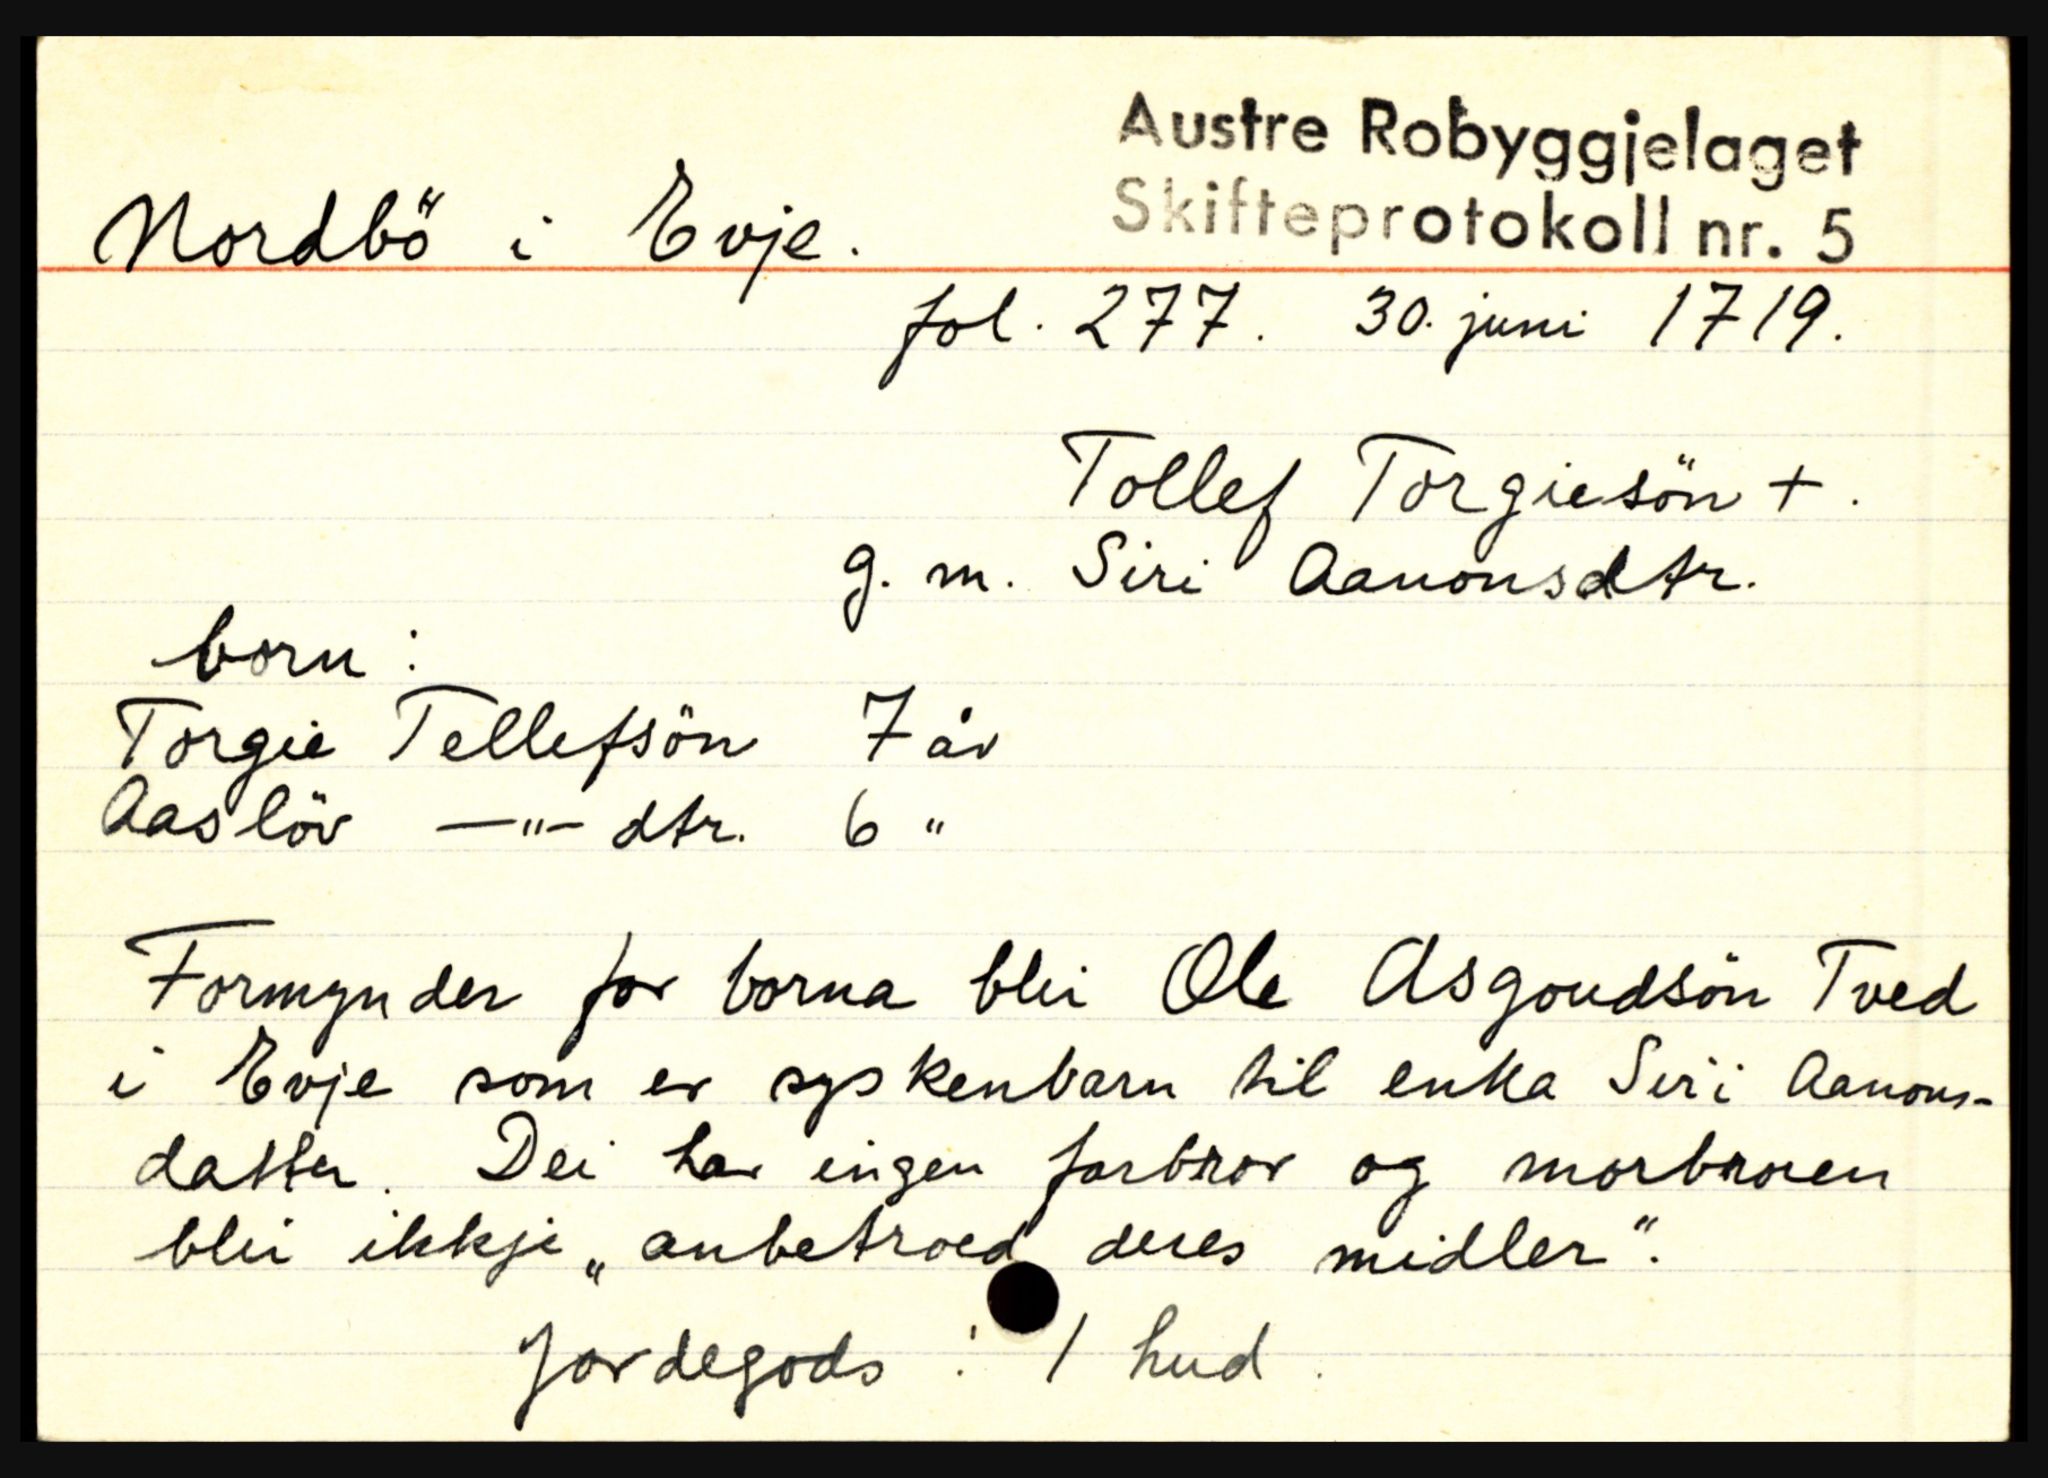 Austre Robyggjelaget
Skifteprotokoll nr. 5
Nordbö i Evje.
fol. 277. 30. juni 1719.
Tollef Torgiesön +.
g. m. Siri Aanonsdtr.
born :
Torgie Tellefsön 7 år
Aaslöv —"— dtr. 6 "
Formynder for borna blei Ole Asgoudsön Tved
i Evje som er syskenbarn til enka Siri Aanons-
datter. Dei har ingen farbror og morbroren
blei ikkje „anbetroed deres midler“.
Jordegods : 1 hud.